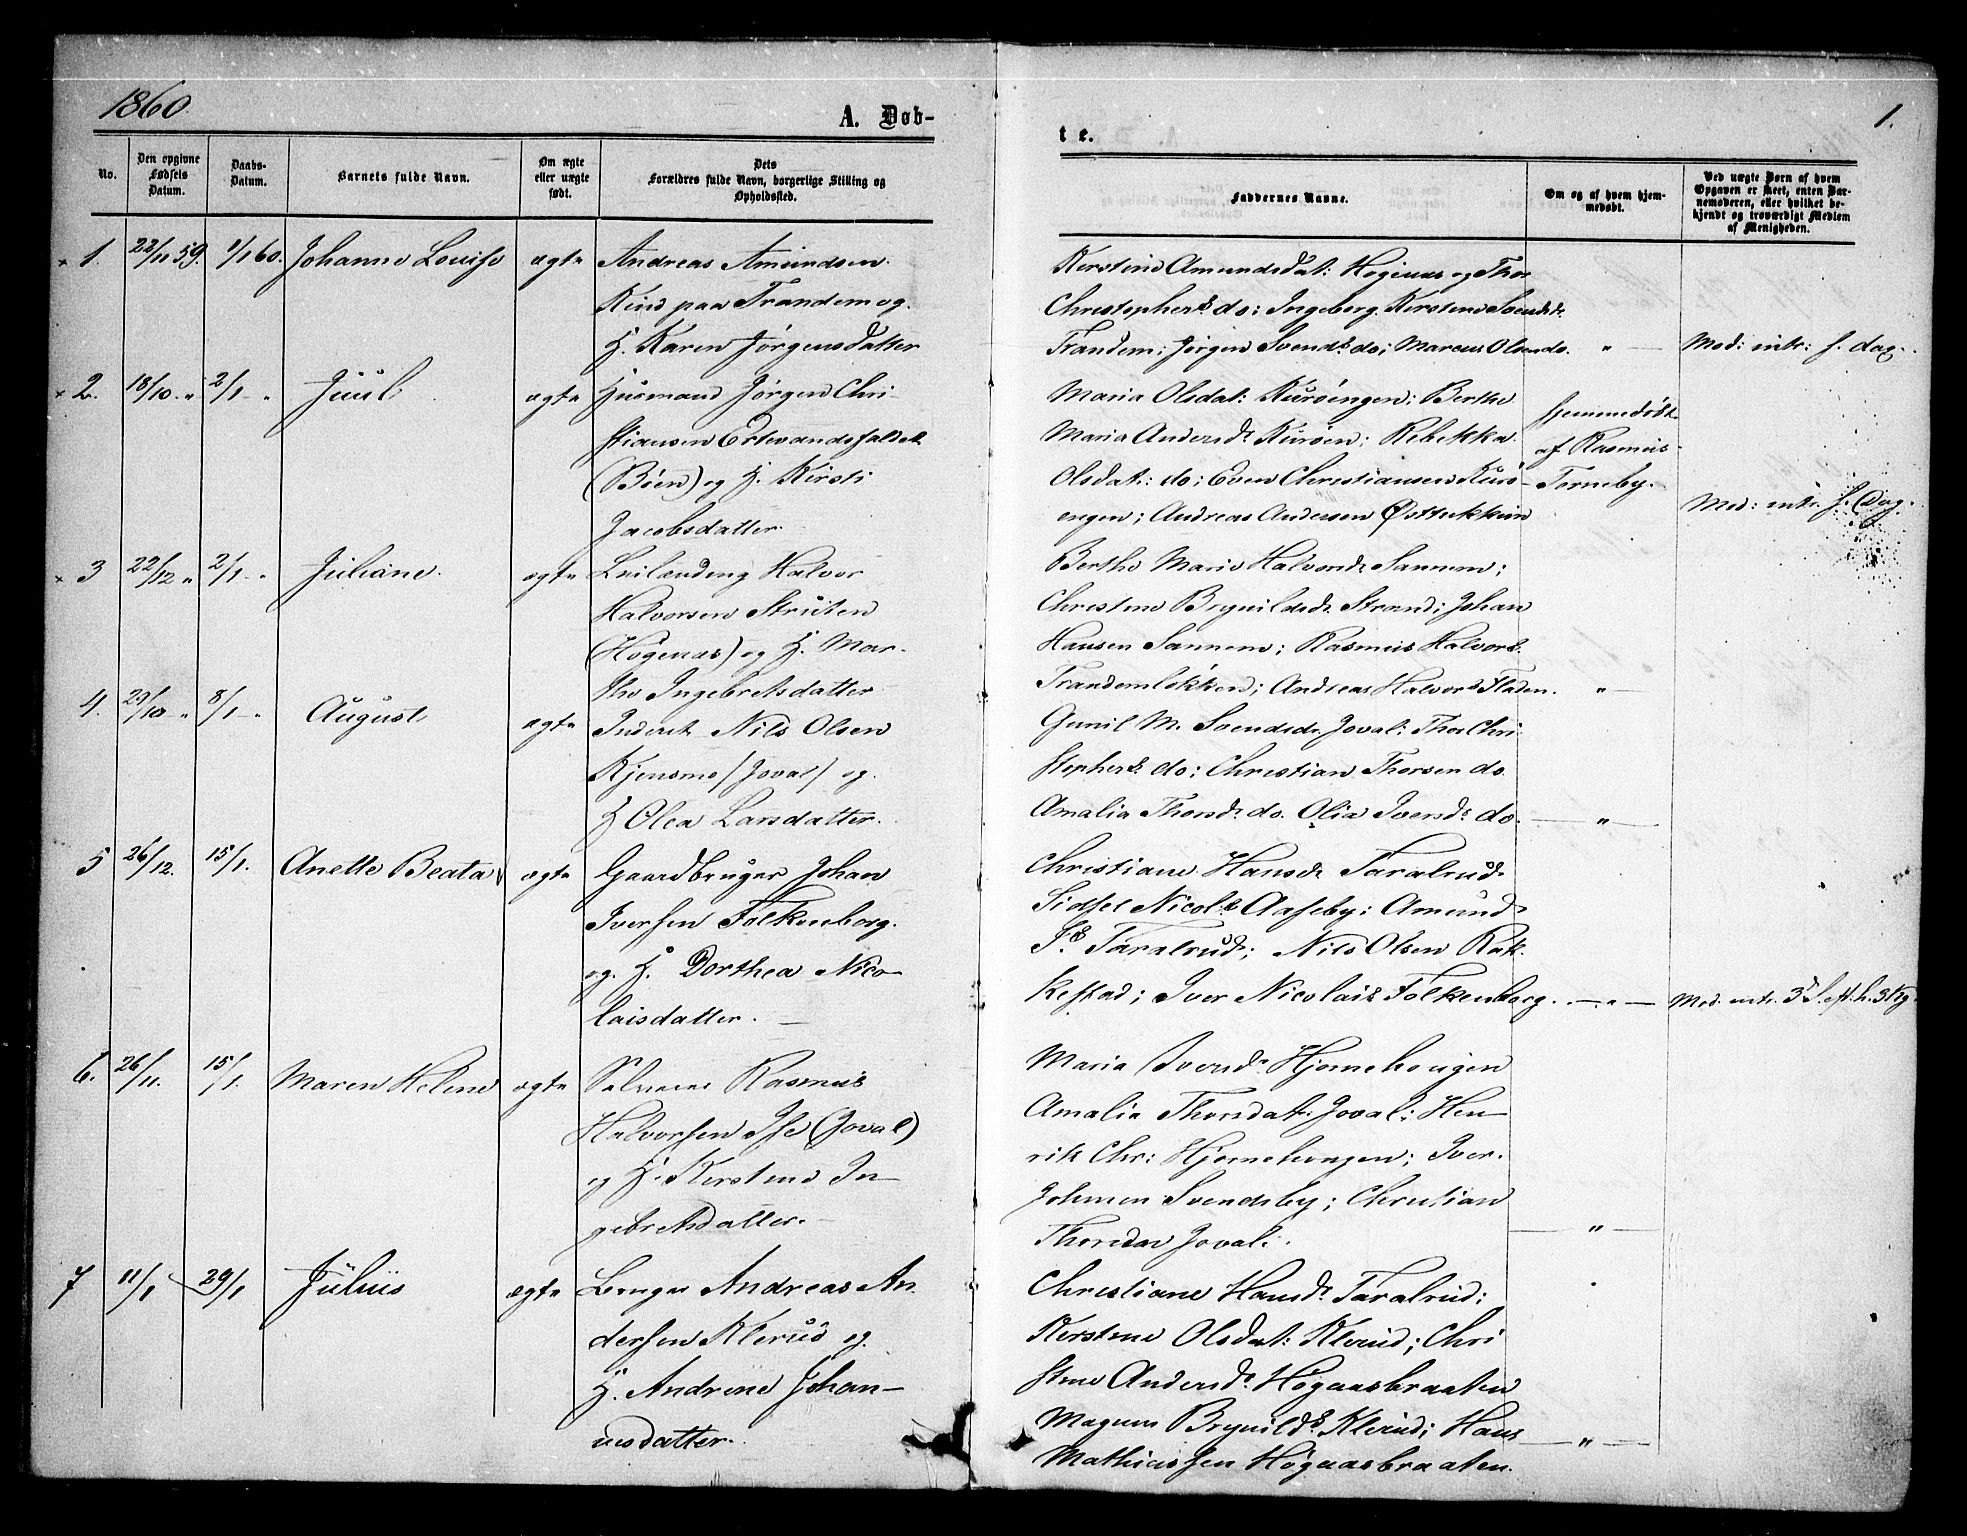 1860.
A. Døb-
t e.
1.
No.
Den opgivne Fødsels Datum.
Daabs-Datum.
Barnets fulde Navn.
Om ægte eller uægte født.
Dets Forældres fulde Navn, borgerlige Stilling og Opholdssted.
Faddernes Navne.
Om og af hvem hjemmedøbt.
Ved uægte Børn af hvem Opgaven er skeet, enten Barnemoderen, eller hvilket bekjendt og troværdigt Medlem af Menigheden.
1. 22/11 59. 1/1 60. Johanne Louise ægte Andreas Amundsen
Kind paa Trandem og
H. Karen Jørgensdatter
Kerstine Amundsdat: Høgenas og Thor
Christophers. do; Ingeborg Kerstine Svendsd.
Trandem; Jørgen Svends. do; Marcus Olsen do. " Mod: intr: s. dag.
2. 18/10 " 2/1 " Juul ægte Husmand Jørgen Chri
stiansen Ertevandsfaldet
(Böen) og H. Kirsti
Jacobsdatter
Maria Olsdat: Kuröengen; Berthe
Maria Andersd. Kuröen; Rebekka
Olsdat: do; Even Christiansen Kurö-
engen; Andreas Andersen Østtukkun
hjemmedøbt
af Rasmus
Torneby.
Mod: intr. s. Dag.
3 22/12 " 2/1 " Juliane. ægte Leilending Halvor
Halvorsen Struten
(Högenas) og H. Mar-
the Ingebretsdatter
Berthe Marie Halvorsd. Sannem;
Christine Brynildsd. Strand; Johan
Hansen Sannem; Rasmus Halvors.
Trandemlökken; Andreas Halvors. Fladen. "
4. 29/10 " 8/1 " August ægte Inderst Nils Olsen
Kjensmo (Joval) og
H Olea Larsdatter.
Gunil M. Svendsd. Joval; Thor Chri
stophers. do; Christian Thorsen do.
Amalia Thorsd. do. Olia Svends. do. "
5 26/12. 15/1. Anette Beata ægte Gaardbruger Johan
Iversen Folkenborg.
og H. Dorthea Nico-
laisdatter.
Christiane Hansd. Taralrud.
Sidsel Nicols. Aaseby; Amund
Taralrud; Nils Olsen Rak-
kestad; Iver Nicolais. Folkenborg. " Mod. intr. 3.
6. 26/11. 15/1. Maren Helene ægte Selveier Rasmus
Halvorsen Ise (Joval)
og H. Kerstine In-
gebretsdatter.
Maria Iversd. Hjornehougen
Amalia Thorsdat. Joval; Hen-
rik Chr: Hjornehougen; Iver
Johnsen Svendsby; Christian
Thorsen Joval. "
7 11/1 29/1 Julius ægte Andreas An-
dersen Klerud og
H. Andrine Johan-
nesdatter.
Christiane Hansd. Taralrud;
Kerstine Olsdat: Klerud; Chri
stine Andersd. Høgaasbraaten
Magnus Brynilds. Klerud; Hans
Mathiassen Høgaasbraaten. "